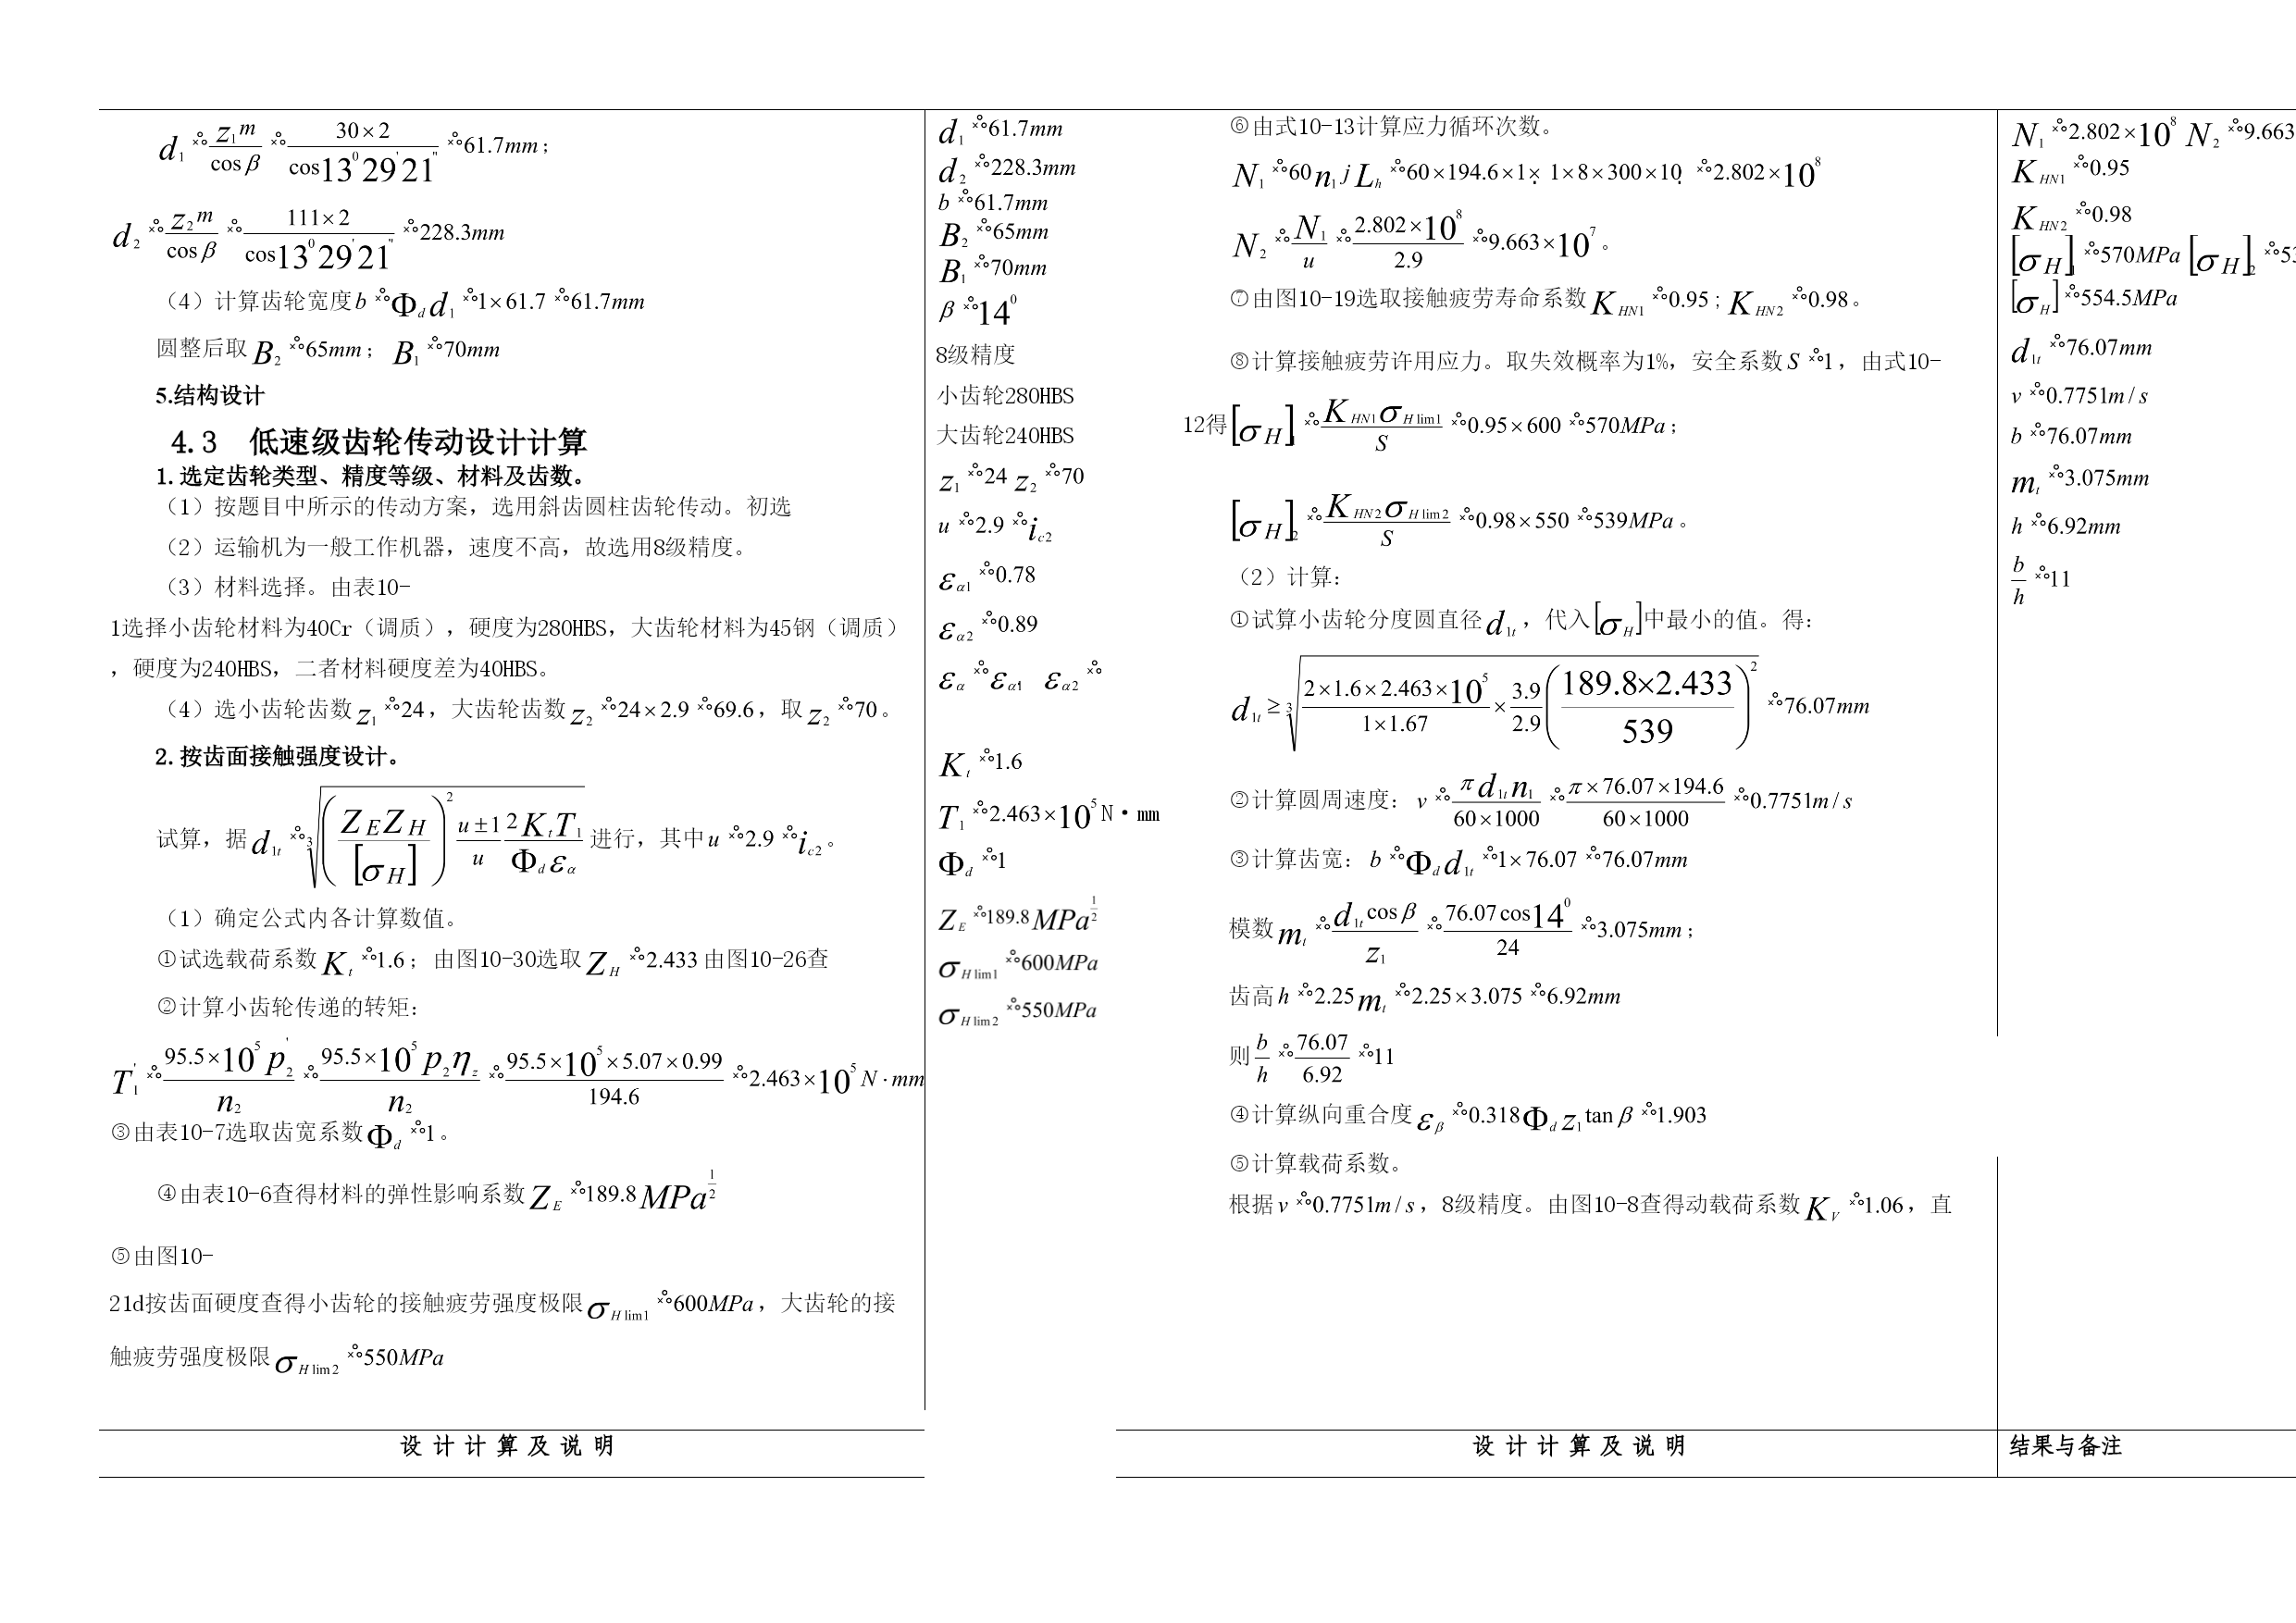 d₁ = z₁m/cosβ = 30×2/cos13⁰29'21" = 61.7mm；
d₂ = z₂m/cosβ = 111×2/cos13⁰29'21" = 228.3mm
（4）计算齿轮宽度b = Φ_d d₁ = 1×61.7 = 61.7mm
圆整后取B₂ = 65mm；B₁ = 70mm
5.结构设计
4.3 低速级齿轮传动设计计算
1.选定齿轮类型、精度等级、材料及齿数。
（1）按题目中所示的传动方案，选用斜齿圆柱齿轮传动。初选
（2）运输机为一般工作机器，速度不高，故选用8级精度。
（3）材料选择。由表10-
1选择小齿轮材料为40Cr（调质），硬度为280HBS，大齿轮材料为45钢（调质）
，硬度为240HBS，二者材料硬度差为40HBS。
（4）选小齿轮齿数z₁ = 24，大齿轮齿数z₂ = 24×2.9 = 69.6，取z₂ = 70。
2.按齿面接触强度设计。
试算，据d_1t = ³√((Z_E Z_H/[σ_H])² (u±1)/u 2K_t T₁/(Φ_d ε_α)) 进行，其中u = 2.9 = i_c2。
（1）确定公式内各计算数值。
①试选载荷系数K_t = 1.6；由图10-30选取Z_H = 2.433 由图10-26查
②计算小齿轮传递的转矩：
T₁' = 95.5×10⁵p₂'/n₂ = 95.5×10⁵p₂η_z/n₂ = 95.5×10⁵×5.07×0.99/194.6 = 2.463×10⁵N·mm
③由表10-7选取齿宽系数Φ_d = 1。
④由表10-6查得材料的弹性影响系数Z_E = 189.8MPa^(1/2)
⑤由图10-
21d按齿面硬度查得小齿轮的接触疲劳强度极限σ_Hlim1 = 600MPa，大齿轮的接
触疲劳强度极限σ_Hlim2 = 550MPa
设计计算及说明
d₁ = 61.7mm
d₂ = 228.3mm
b = 61.7mm
B₂ = 65mm
B₁ = 70mm
β = 14⁰
8级精度
小齿轮280HBS
大齿轮240HBS
z₁ = 24 z₂ = 70
u = 2.9 = i_c2
ε_α1 = 0.78
ε_α2 = 0.89
ε_α = ε_α1 ε_α2 =
K_t = 1.6
T₁ = 2.463×10⁵N·mm
Φ_d = 1
Z_E = 189.8MPa^(1/2)
σ_Hlim1 = 600MPa
σ_Hlim2 = 550MPa
⑥由式10-13计算应力循环次数。
N₁ = 60n₁jL_h = 60×194.6×1× 1×8×300×10 = 2.802×10⁸
N₂ = N₁/u = 2.802×10⁸/2.9 = 9.663×10⁷。
⑦由图10-19选取接触疲劳寿命系数K_HN1 = 0.95；K_HN2 = 0.98。
⑧计算接触疲劳许用应力。取失效概率为1%，安全系数S = 1，由式10-
12得[σ_H]₁ = K_HN1σ_Hlim1/S = 0.95×600 = 570MPa；
[σ_H]₂ = K_HN2σ_Hlim2/S = 0.98×550 = 539MPa。
（2）计算：
①试算小齿轮分度圆直径d_1t，代入[σ_H]中最小的值。得：
d_1t ≥ ³√(2×1.6×2.463×10⁵/(1×1.67) × 3.9/2.9 (189.8×2.433/539)²) = 76.07mm
②计算圆周速度：v = πd_1t n₁/(60×1000) = π×76.07×194.6/(60×1000) = 0.7751m/s
③计算齿宽：b = Φ_d d_1t = 1×76.07 = 76.07mm
模数m_t = d_1t cosβ/z₁ = 76.07cos14⁰/24 = 3.075mm；
齿高h = 2.25m_t = 2.25×3.075 = 6.92mm
则b/h = 76.07/6.92 = 11
④计算纵向重合度ε_β = 0.318Φ_d z₁tanβ = 1.903
⑤计算载荷系数。
根据v = 0.7751m/s，8级精度。由图10-8查得动载荷系数K_V = 1.06，直
设计计算及说明
N₁ = 2.802×10⁸ N₂ = 9.663
K_HN1 = 0.95
K_HN2 = 0.98
[σ_H]₁ = 570MPa [σ_H]₂ = 53
[σ_H] = 554.5MPa
d_1t = 76.07mm
v = 0.7751m/s
b = 76.07mm
m_t = 3.075mm
h = 6.92mm
b/h = 11
结果与备注